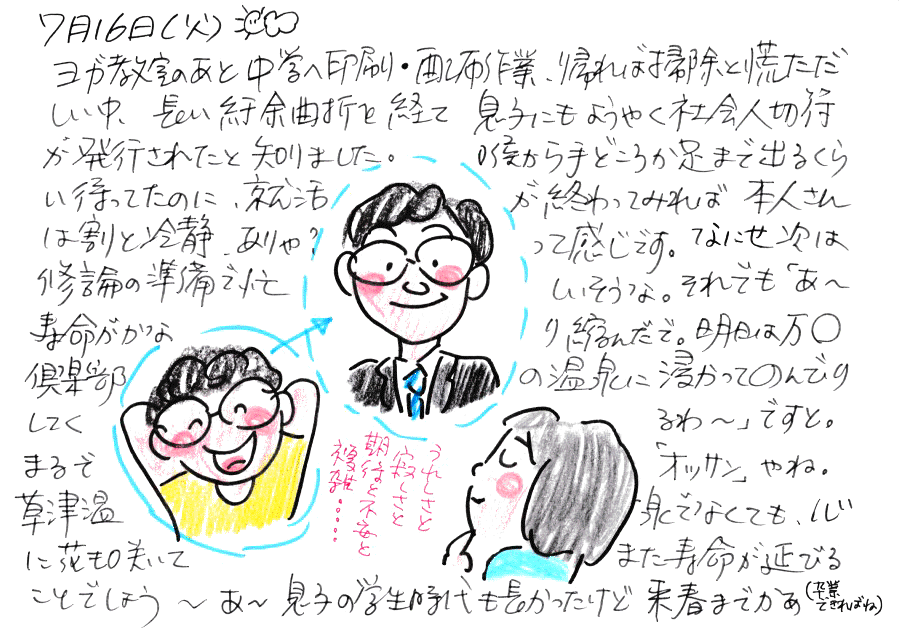 7月16日(火)
ヨガ教室のあと中学へ印刷・配布作業、帰れば掃除と慌ただ
しい中、長い紆余曲折を経て 息子にもようやく社会人切符
が発行されたと知りました。 喉から手どころか足まで出るくら
い待ってたのに、就活が終わってみれば 本人さん
は割と冷静、ありゃ?って感じです。なにせ次は
修論の準備で忙しいそうな。それでも「あ〜
寿命がかなり縮んだで。明日は万〇
倶楽部の温泉に浸かって〇んびり
してくるわ〜」ですと。
まるで「オッサン」やね。
草津温泉でなくても、心
に花も咲いてまた寿命が延びる
ことでしょう 〜 あ〜 息子の学生時代も長かったけど 来春までかぁ(卒業
できればね)
うれしさと
寂しさと
期待と不安と
複雑……